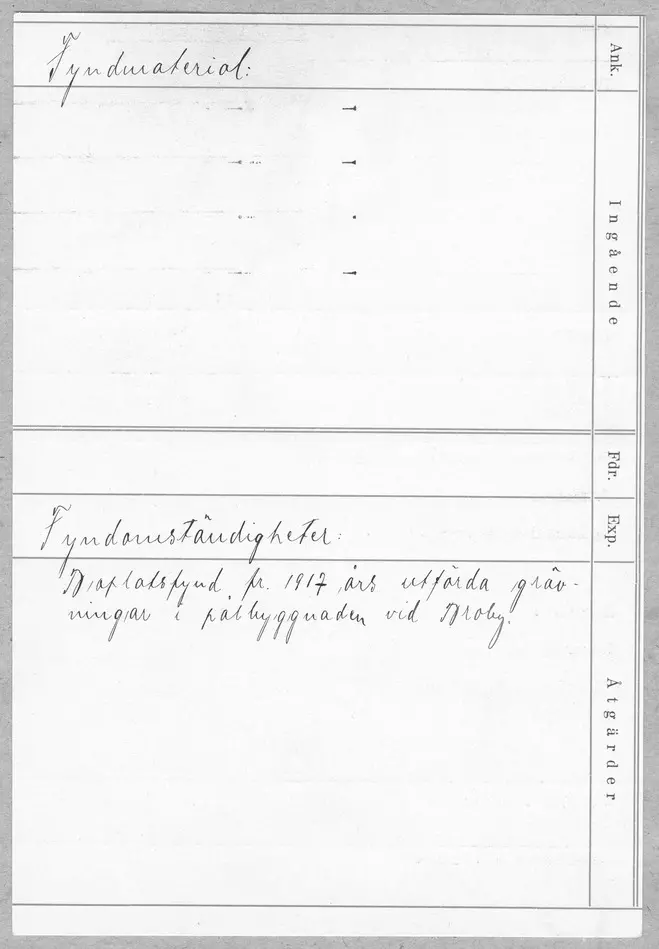 Ank.
Fyndmaterial:
Ingående
Fdr.
Exp.
Fyndomständigheter:
Boplatsfynd fr. 1917 års utförda gräv-
ningar i pålbyggnaden vid Broby.
Åtgärder